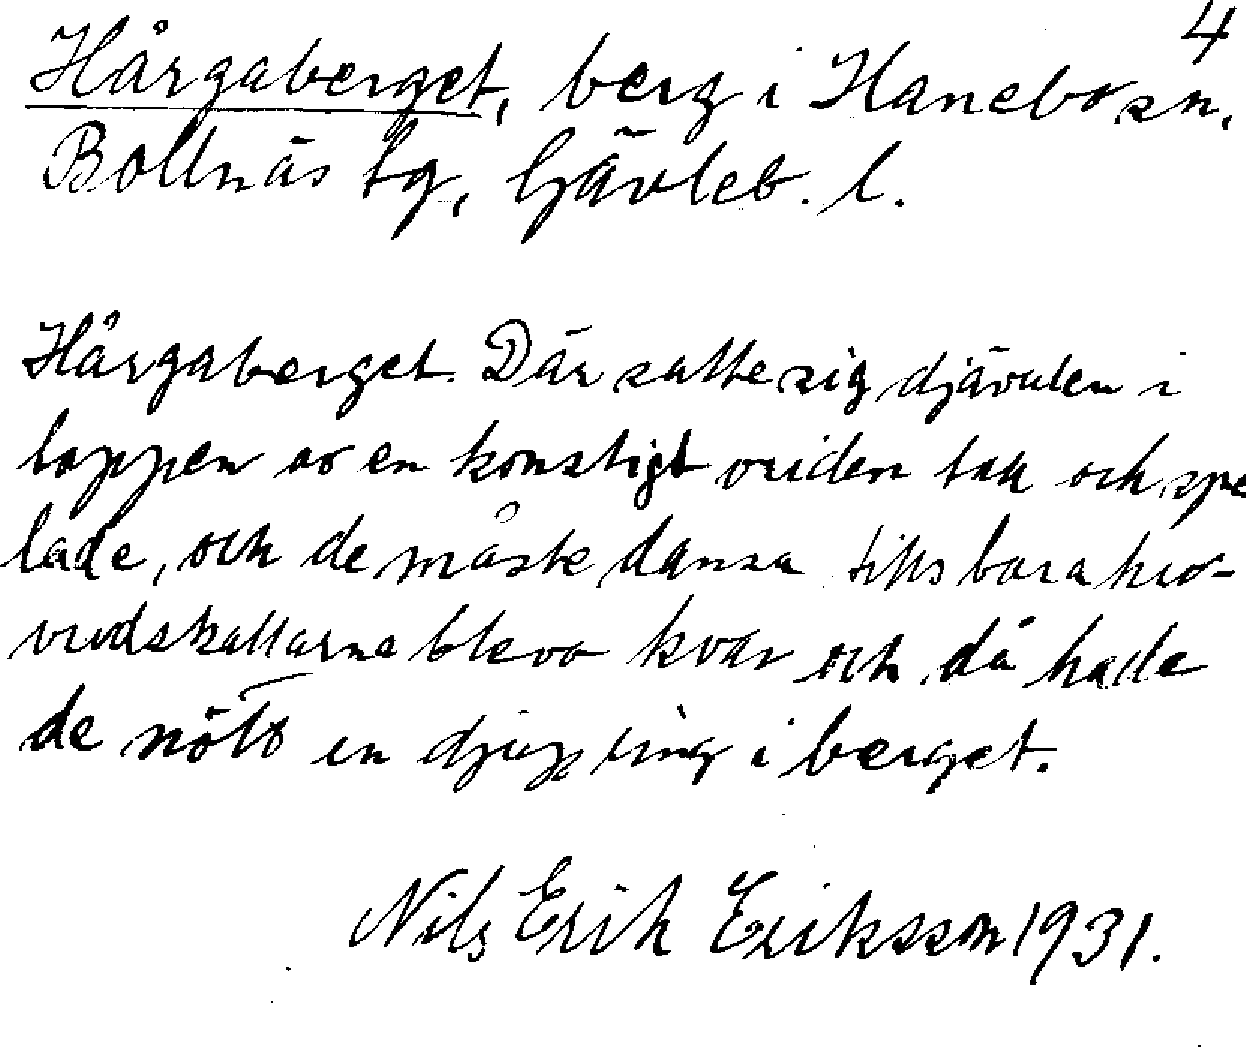 4
Hårgaberget, berg i Hanebo sn,
Bollnäs tg, Gävleb. l.
Hårgaberget. Där satte sig djävulen i
toppen av en konstigt vriden tall och spe
lade, och de måste dansa tills bara huv-
vudskallarna bleva kvar och då hade
de nött en djup ring i berget.
Nils Erik Eriksson 1931.